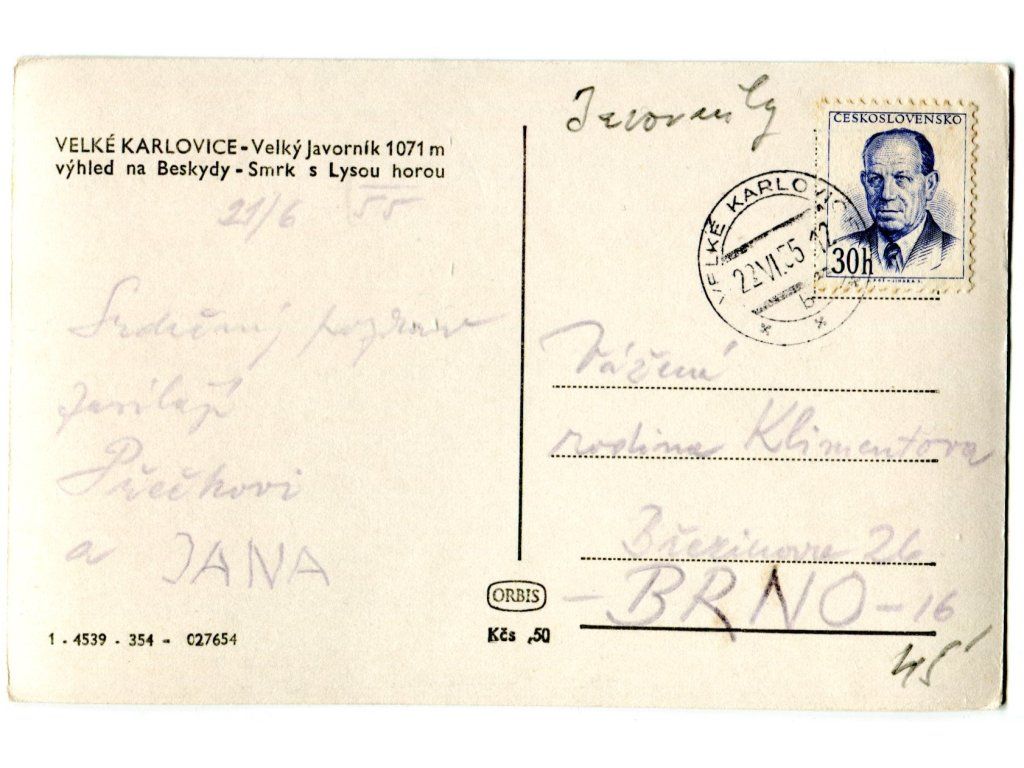 Javorníky
ČESKOSLOVENSKO
30h
VELKÉ KARLOVICE
22.VI.55.12
b
VELKÉ KARLOVICE - Velký Javorník 1071 m
výhled na Beskydy - Smrk s Lysou horou
21/6 55
Srdečný pozdrav
zasílají
a JANA
Vážená
rodina Klimentova
Březinova 26
- BRNO - 16
ORBIS
Kčs ,50
1 - 4539 - 354 - 027654
45